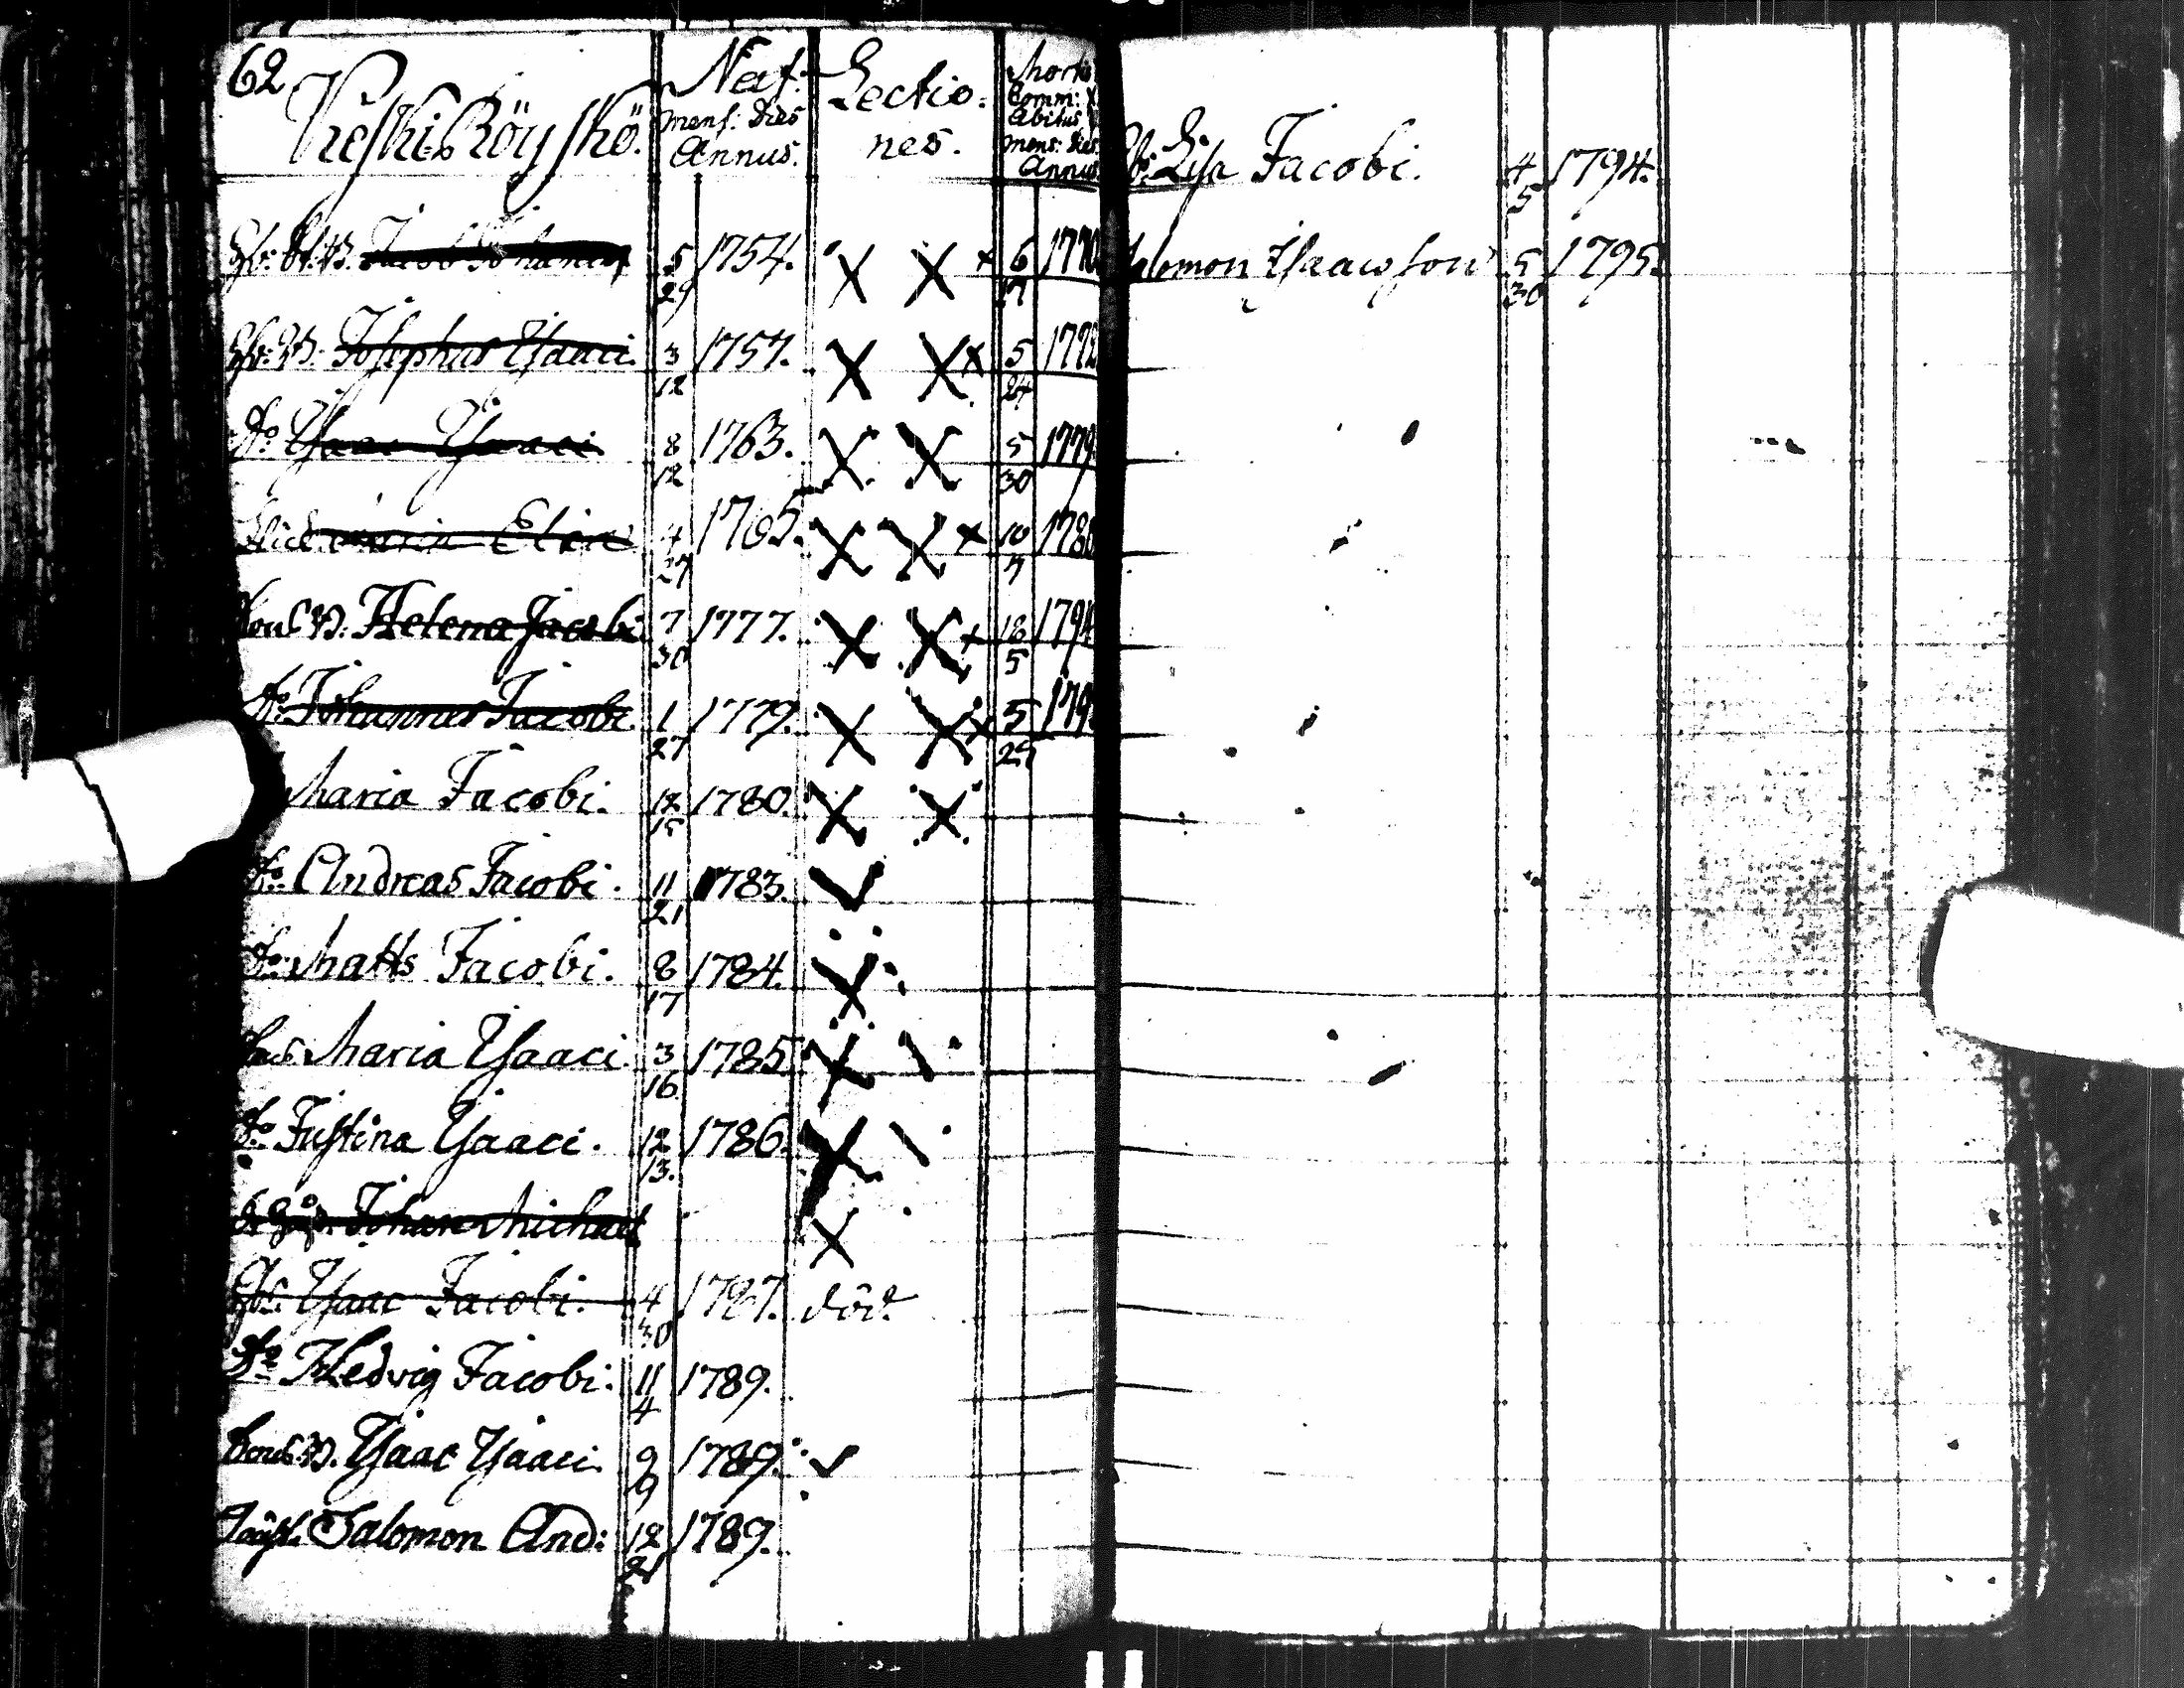 62
Keski Böyskö.
Nat:
mens: Dies
Annus.
Lectio-
nes.
Mort
Comm: X
Abitus
mens: Dies
Annus
Jacob Johannis 5 29 1754. X X x 6 17 1770
Josephus Isaaci 3 12 1757. X X x 5 24 1772
Do Isaac Isaaci 8 12 1763. X X 5 30 1779
Maria Elia 4 27 1765. X X x 10 7 178
Helena Jacobi 7 30 1777. X X x 18 5 1794
Do Johannes Jacobi 1 27 1779. X X x 5 29 179
Maria Jacobi. 12 15 1780. X X
Do Andreas Jacobi. 11 21 1783.
Do Matts Jacobi. 8 17 1784.
Maria Isaaci. 3 16 1785. X
Do Justina Isaaci. 12 13. 1786. X
Johan Michael X
Isaac Jacobi. 4 30 1787. död.
Do Hedvig Jacobi. 11 4 1789.
Isaac Isaaci. 9 9 1789.
Salomon And: 12 21 1789.
Lisa Jacobi. 4 5 1794.
alomon Isaacsson 5 30 1795.